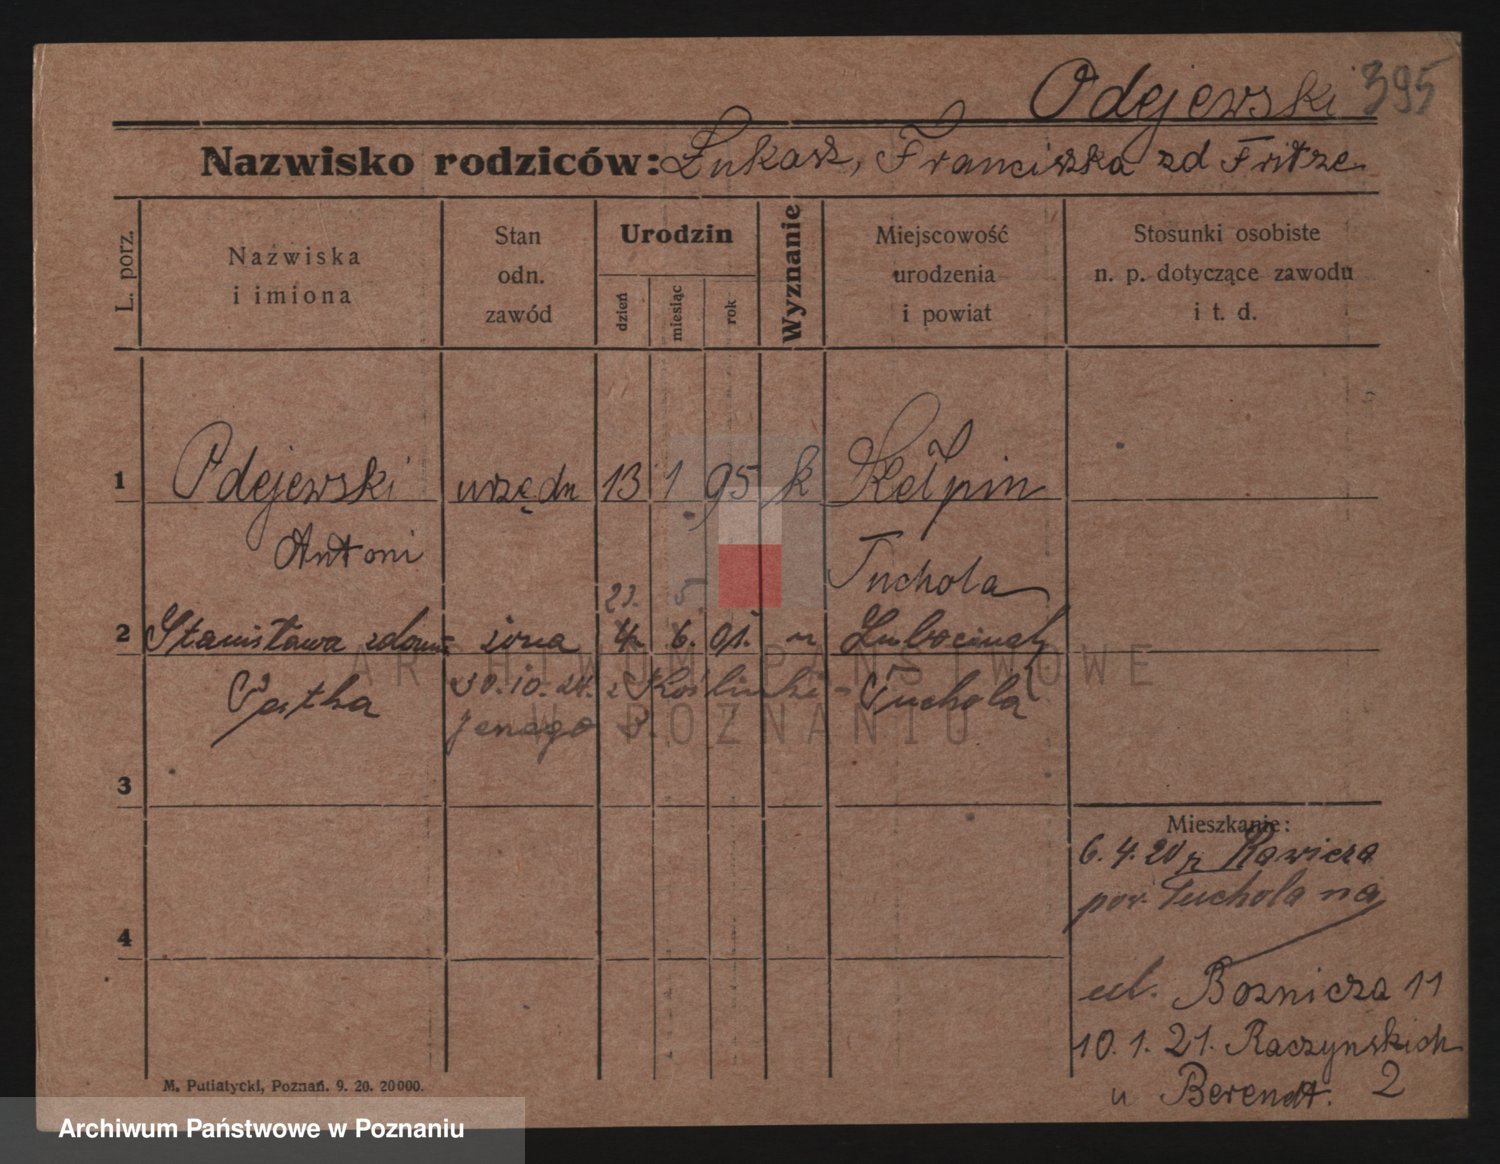 Odejewski 395
Nazwisko rodziców: Łukasz, Franciszka zd Fritze
L. porz.
Nazwiska
i imiona
Stan
odn.
zawód
Urodzin
dzień
miesiąc
rok
Wyznanie
Miejscowość
urodzenia
i powiat
Stosunki osobiste
n. p. dotyczące zawodu
i t. d.
1 Odejewski urzędn 13 1 95 k Kełpin
Antoni Tuchola
5.
2 Stanisława zdomu żona 4 6. 01. "
Tuchola
3
Mieszkanie:
6. 4. 20 z Rawicza
pow. Tuchola na
4
ul. Boznicza 11
10. 1. 21. Raczynskich
u Berendt. 2
M. Putiatycki, Poznań. 9. 20. 20000.
ARCHIWUM PAŃSTWOWE
W POZNANIU
Archiwum Państwowe w Poznaniu